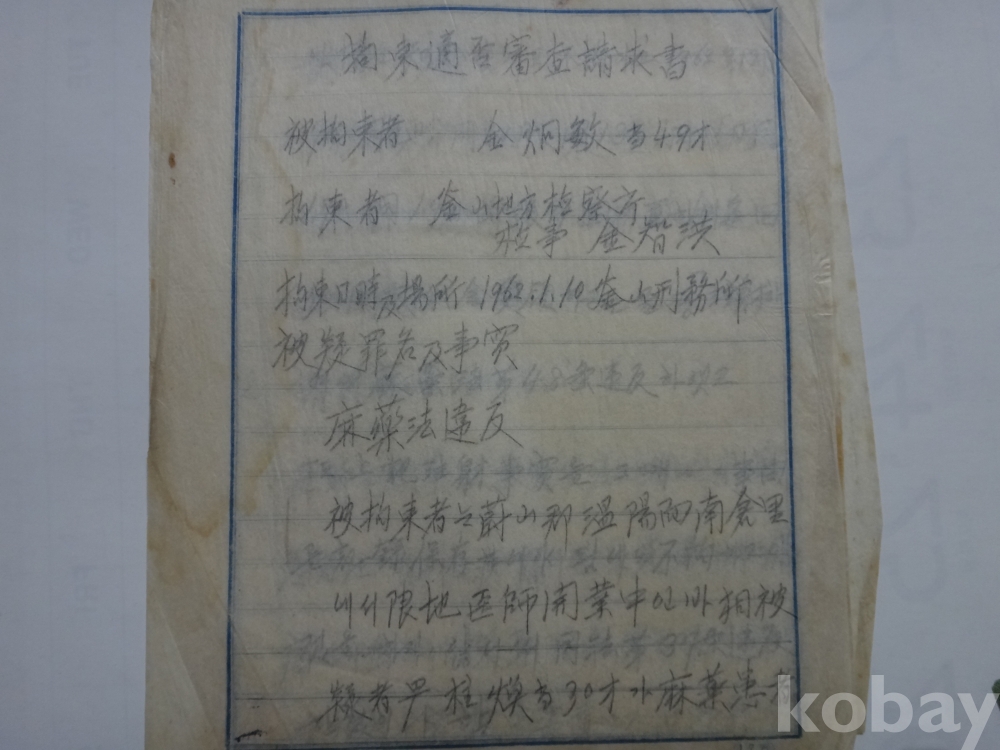 拘束適否審査請求書
被拘束者 金炯敏 当49才
拘束者 釜山地方検察庁
検事 金智洪
拘束日時及場所 1962.1.10 釜山刑務所
被疑罪名及事実
麻藥法違反
被拘束者는 蔚山郡 温陽面 南倉里
에서 限地医師 開業中인바 相被
疑者 尹柱煥 当30才가 麻薬患者
kobay